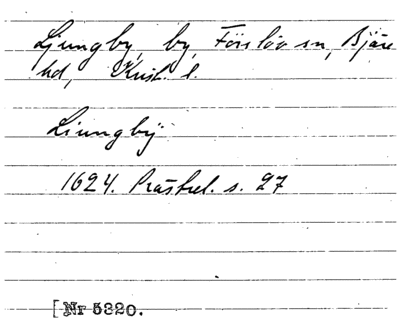 Ljungby, by, Förslöv sn, Bjäre
hd, Krist. l.
Liungbÿ
1624. Prästrel. s. 27
[Nr 5320.